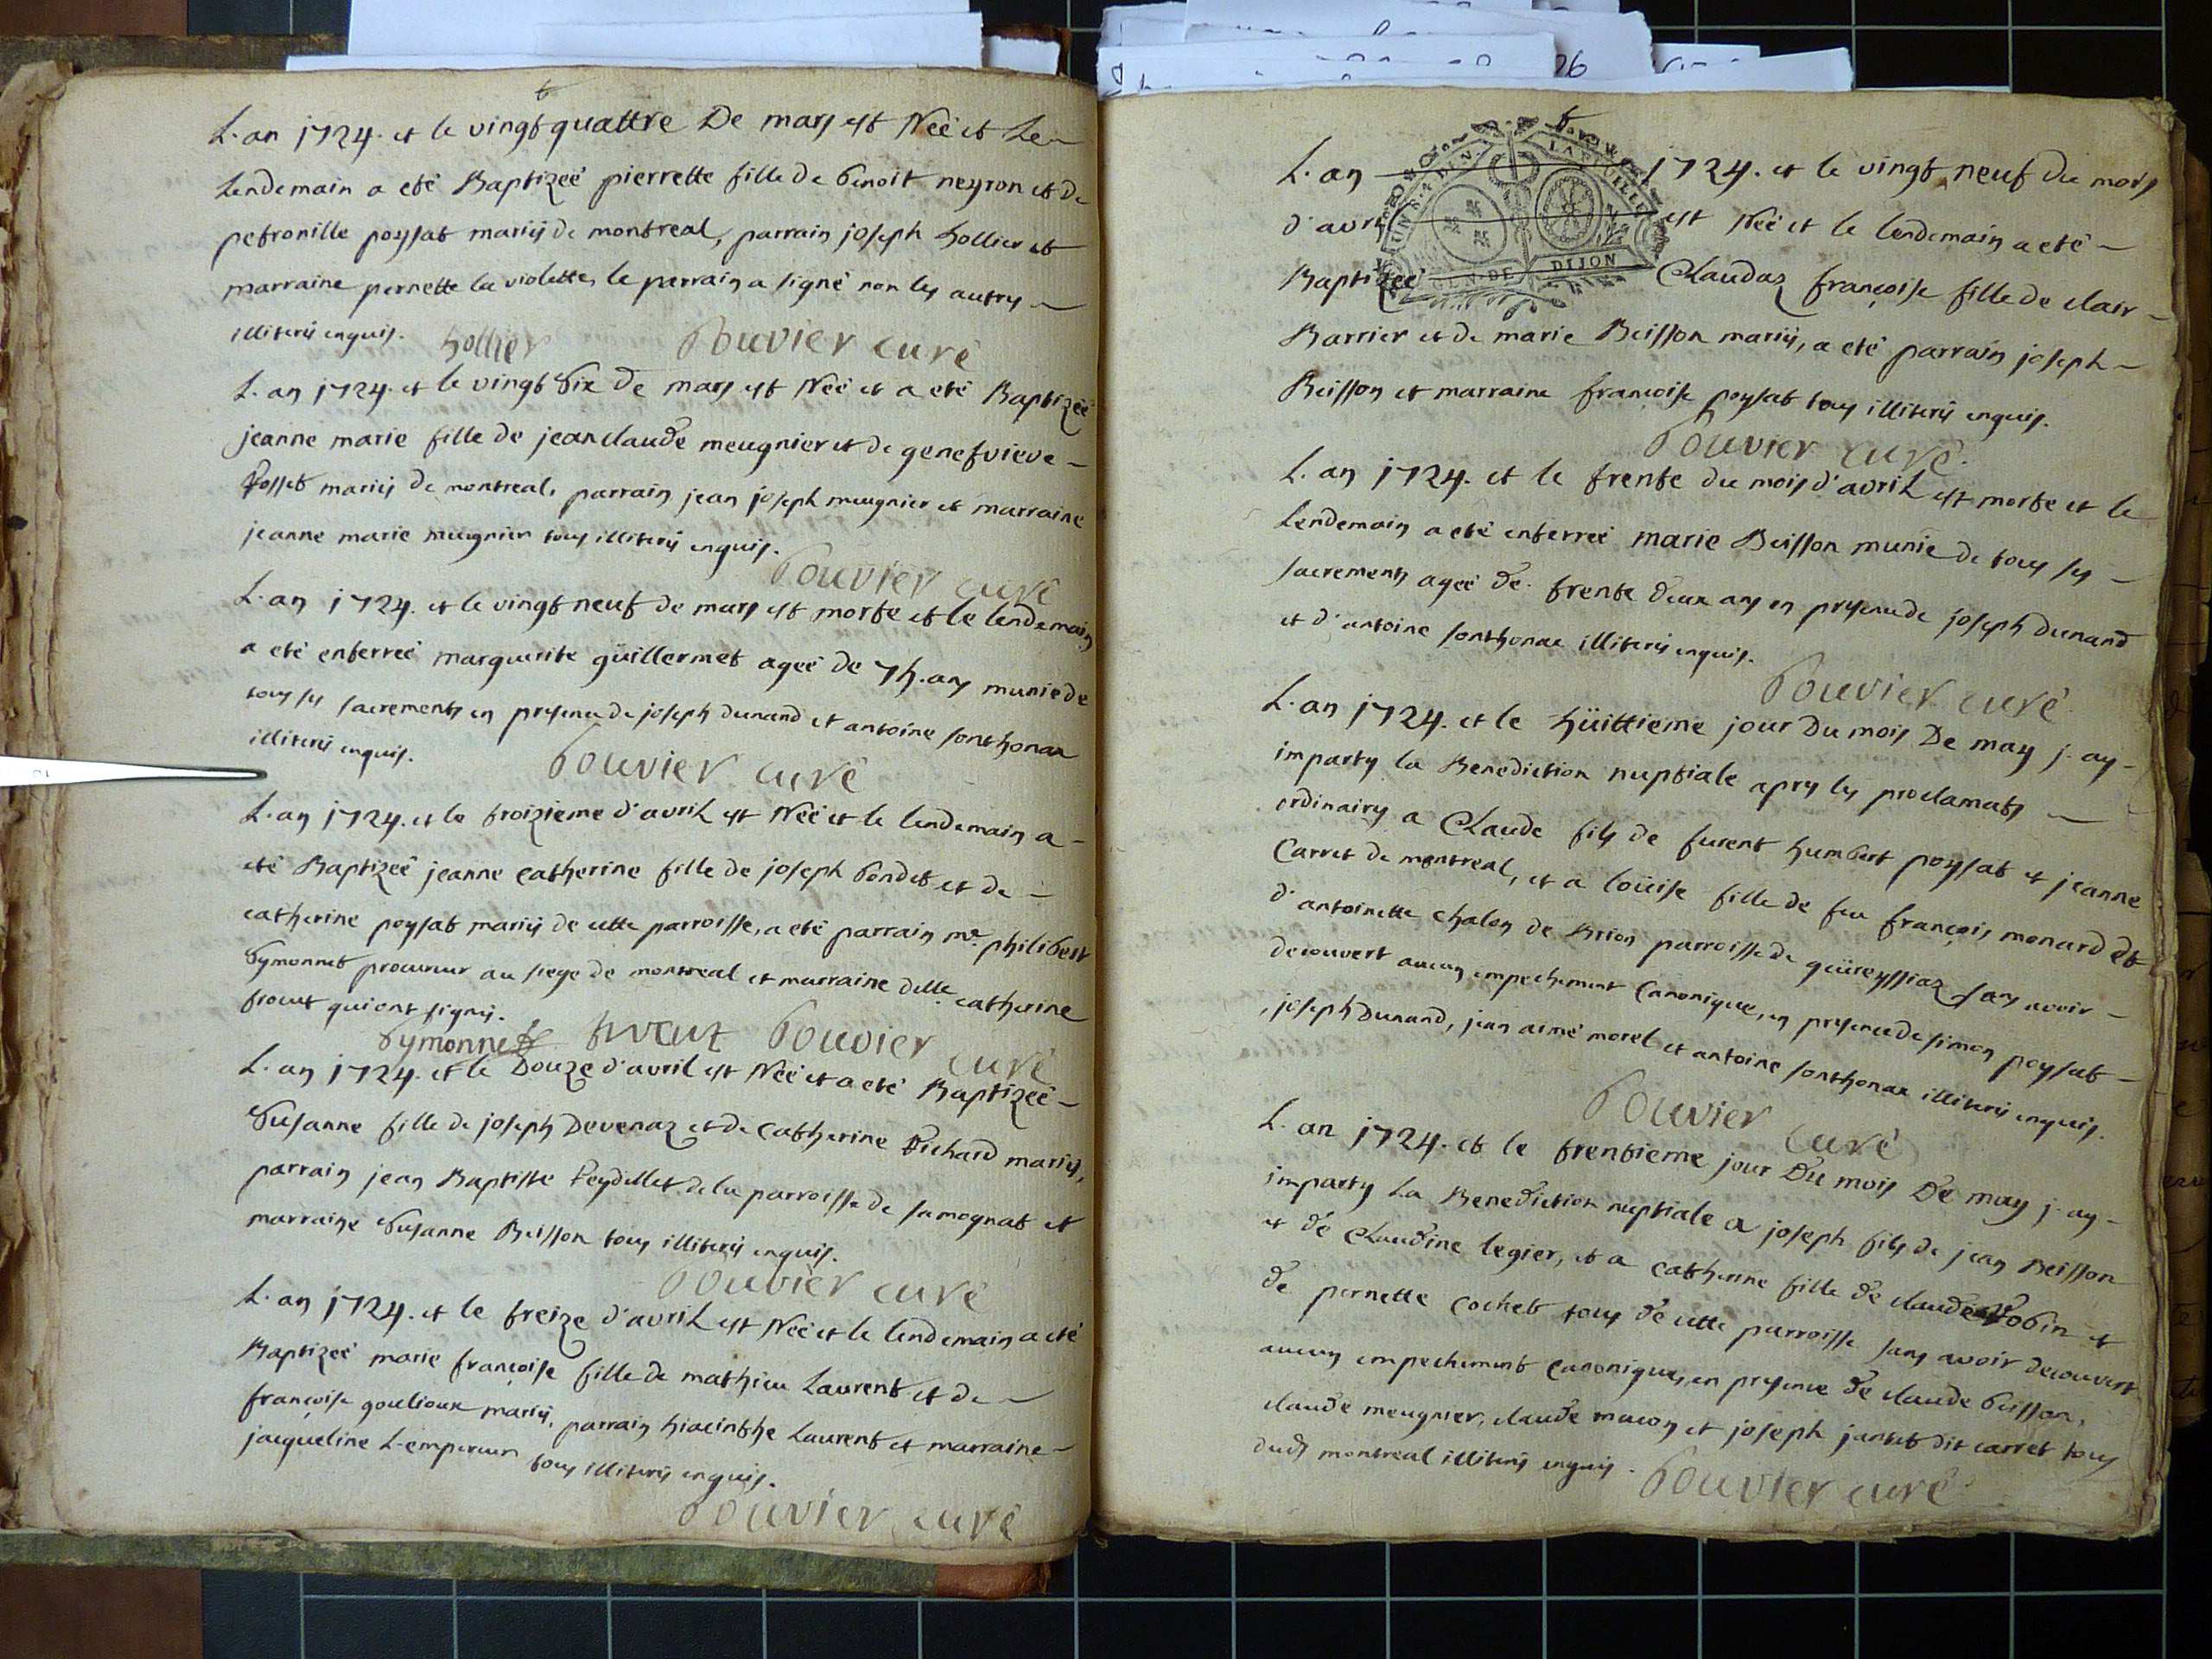 L'an 1724. et le vingt quattre De mars est Née et Le
Lendemain a eté Baptizeé pierrette fille de benoit neyron et de
petronille poysat mariés de montreal, parrain joseph hollier et
marraine pernette la violette, le parrain a signé non les autres
illiterés enquis. hollier Bouvier curé
L'an 1724. et le vingt six de mars est Née et a eté Baptizeé
jeanne marie fille de jean claude meugnier et de genefvieve
mariés de montreal, parrain jean joseph meugnier et marraine
jeanne marie meugnier tous illiterés enquis.
Bouvier curé
L'an 1724. et le vingt neuf de mars est morte et le lendemain
a eté enterreé marguerite güillermet ageé de ans munie de
tous ses sacrements en presence de joseph dunand et antoine sonthonax
illiterés enquis. Bouvier curé
L'an 1724. et le troizieme d'avril est Née et le lendemain a
eté Baptizeé jeanne catherine fille de joseph bondet et de
catherine poysat mariés de cette parroisse, a eté parrain me. philibert
Symonnet procureur au siege de montreal et marraine delle. catherine
qui ont signés.
Symonnet Bouvier curé
L'an 1724. et le Douze d'avril est Née et a eté Baptizeé
Susanne fille de joseph Devenaz et de Catherine Richard mariés,
parrain jean Baptiste Peydillet de la parroisse de samognat et
marraine Susanne Buisson tous illiterés enquis.
Bouvier curé
L'an 1724. et le treize d'avril est Née et le lendemain a eté
Baptizeé marie françoise fille de mathieu Laurent et de
françoise goulioux mariés, parrain hiacinthe Laurent et marraine
jacqueline L'empereur tous illiterés enquis.
Bouvier curé
L'an 1724. et le vingt neuf du mois
d'avril est Née et le lendemain a eté
Baptizeé Claudaz françoise fille de clair
GEN. DE DIJON
Barrier et de marie Buisson mariés, a eté parrain joseph
Buisson et marraine françoise poysat tous illiterés enquis.
Bouvier curé.
L'an 1724. et le trente du mois d'avril est morte et le
Lendemain a eté enterreé marie Buisson munie de tous ses
sacrements ageé de trente deux ans en presence de joseph dunand
et d'antoine sonthonax illiterés enquis.
Bouvier curé
L'an 1724. et le hüittieme jour Du mois De may j'ay
imparty la Benediction nuptiale apres les proclamats
ordinaires a Claude fils de furent humbert poysat et jeanne
Carret de montreal, et a loüise fille de feu françois monard et
d'antoinette chalon de Brion parroisse de güireyssiaz sans avoir
decouvert aucun empechement Canonique, en presence de simon poysat
, joseph Dunand, jean aimé morel et antoine sonthonax illiterés enquis.
Bouvier curé
L'an 1724. et le trentieme jour Du mois De may j'ay
imparty La Benediction nuptiale a joseph fils de jean Buisson
et de Claudine legier, et a catherine fille de claude Robin et
de pernette Cochet tous de cette parroisse sans avoir decouvert
aucun empechement Canonique, en presence de claude buisson,
claude meugnier, claude macon et joseph jantet dit carret tous
dud montreal illiterés enquis. Bouvier curé